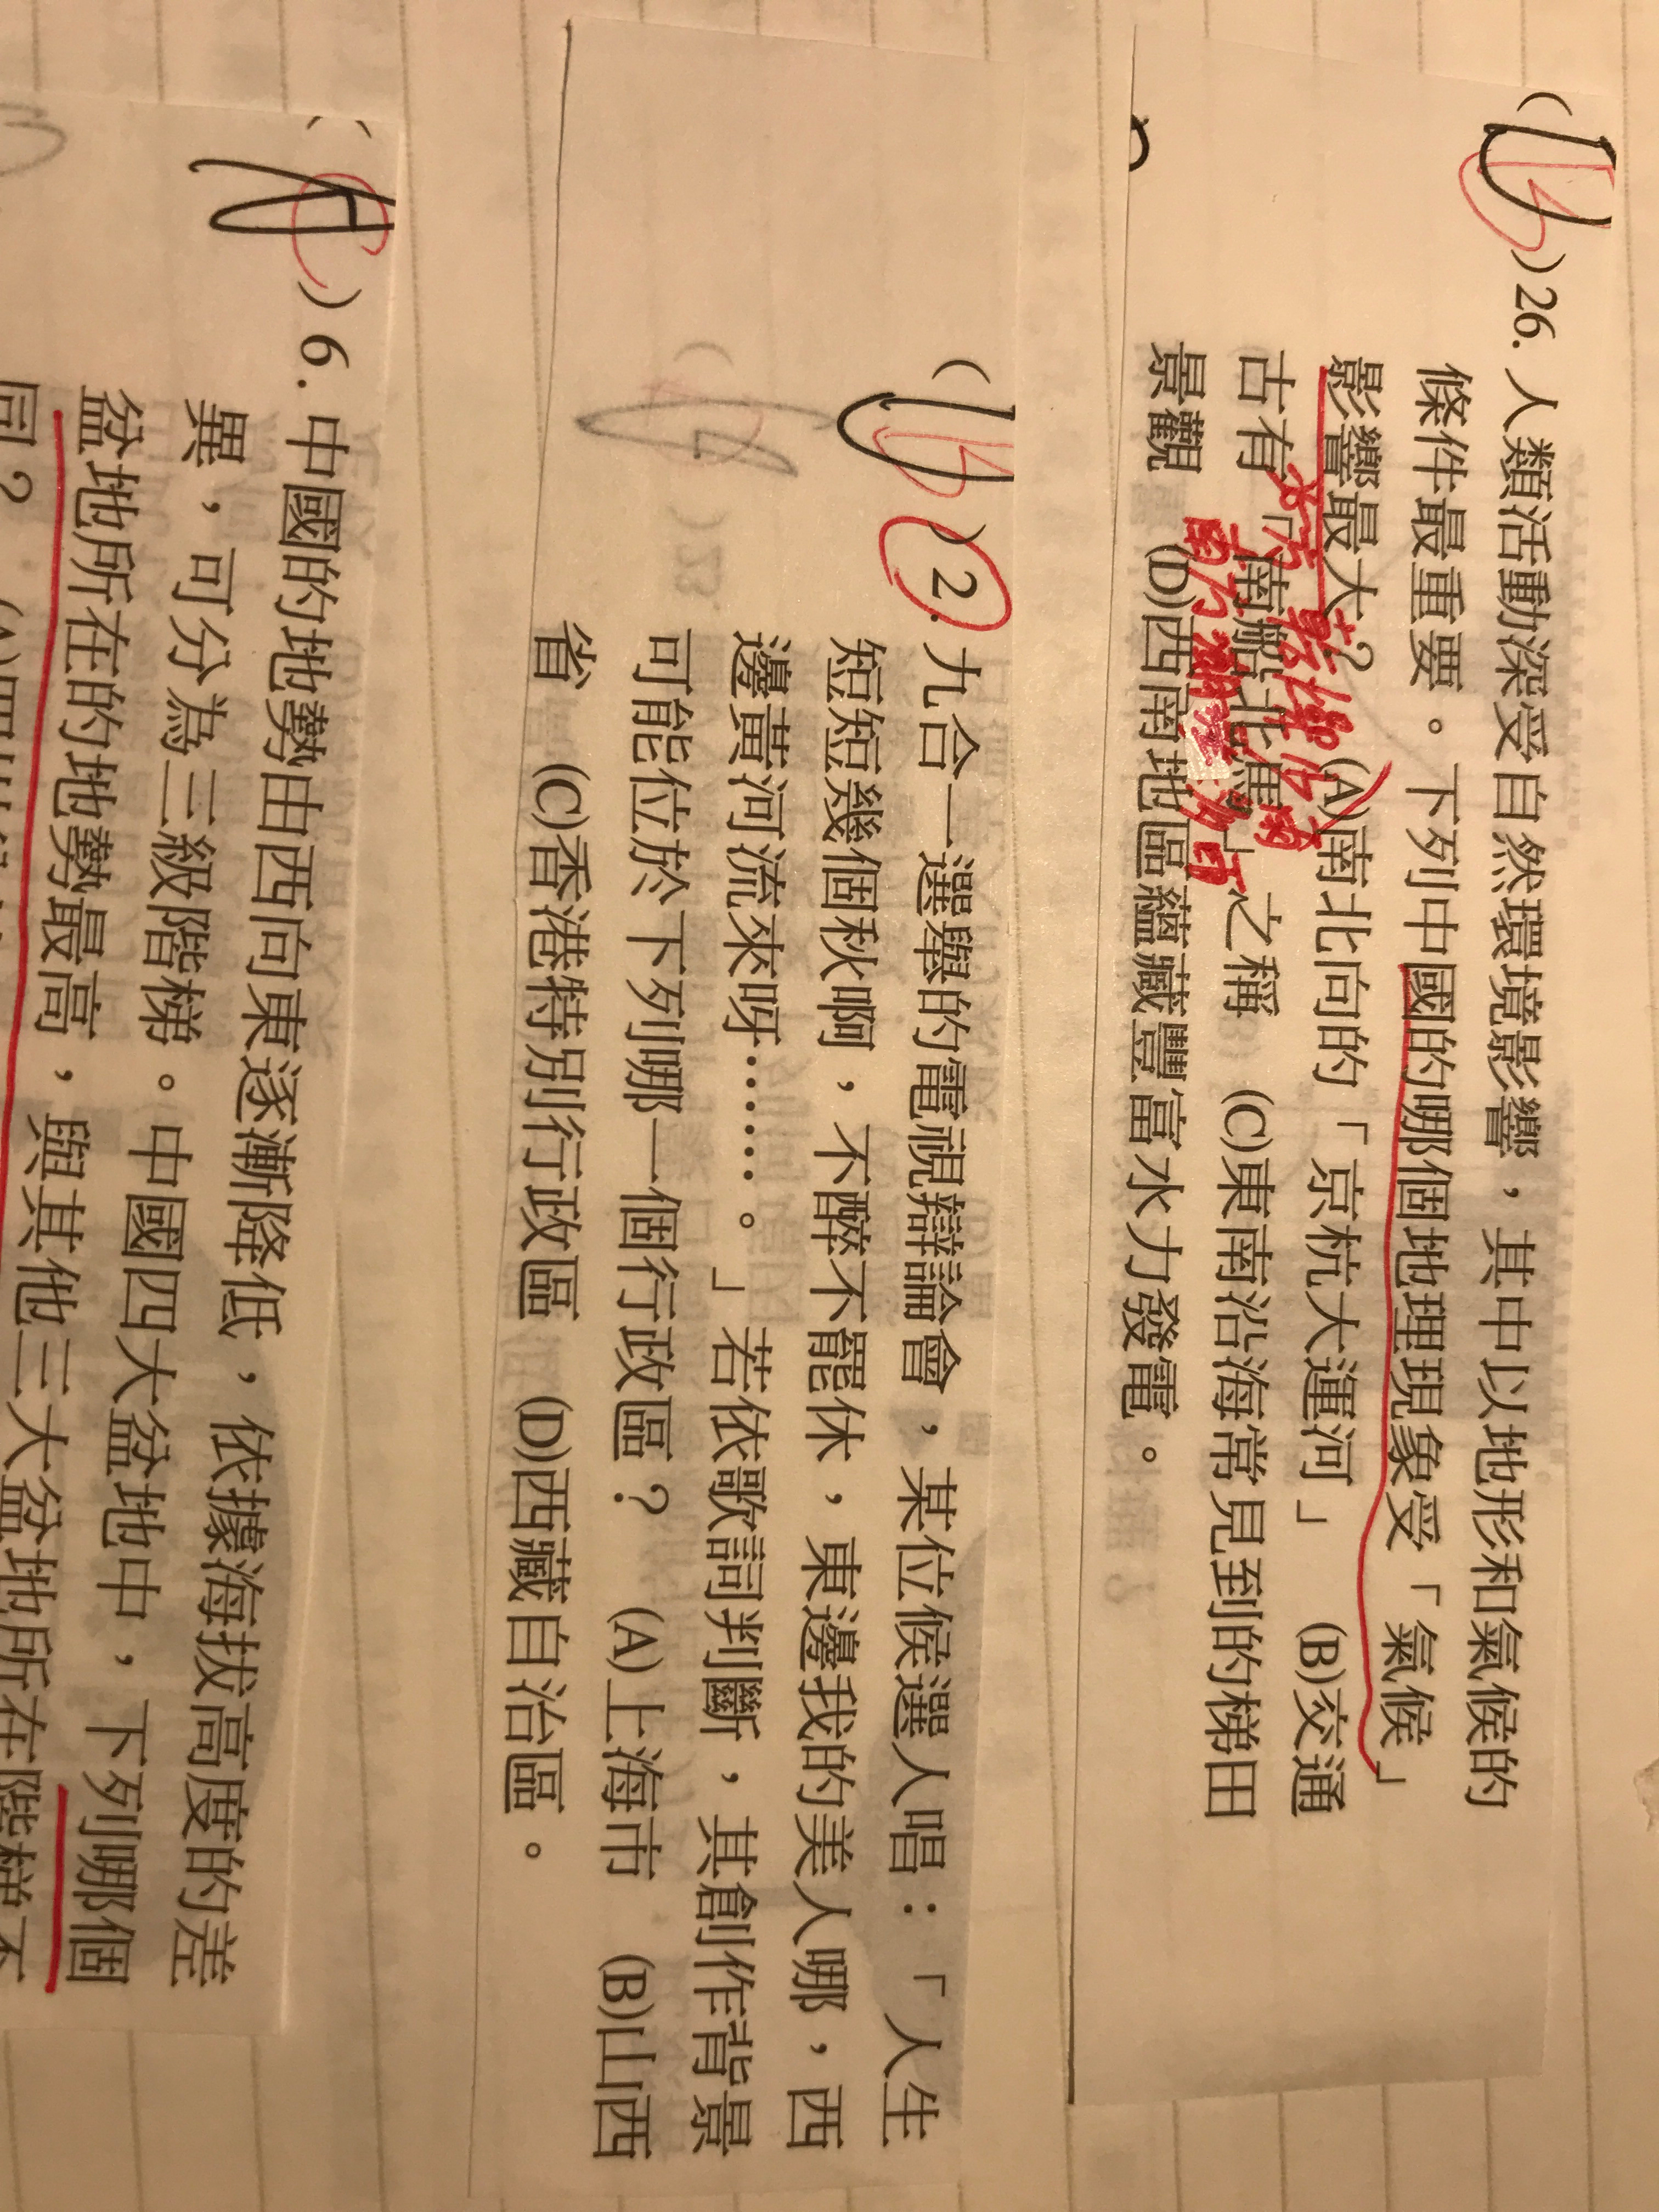 ( )26. 人類活動深受自然環境影響，其中以地形和氣候的
條件最重要。下列中國的哪個地理現象受「氣候」
影響最大？ (A)南北向的「京杭大運河」 (B)交通
古有「南船北馬」之稱 (C)東南沿海常見到的梯田
景觀 (D)西南地區蘊藏豐富水力發電。
( )2. 九合一選舉的電視辯論會，某位候選人唱：「人生
短短幾個秋啊，不醉不罷休，東邊我的美人哪，西
邊黃河流來呀……。」若依歌詞判斷，其創作背景
可能位於下列哪一個行政區？ (A)上海市 (B)山西
省 (C)香港特別行政區 (D)西藏自治區。
(A)6. 中國的地勢由西向東逐漸降低，依據海拔高度的差
異，可分為三級階梯。中國四大盆地中，下列哪個
盆地所在的地勢最高，與其他三大盆地所在階梯不
同？